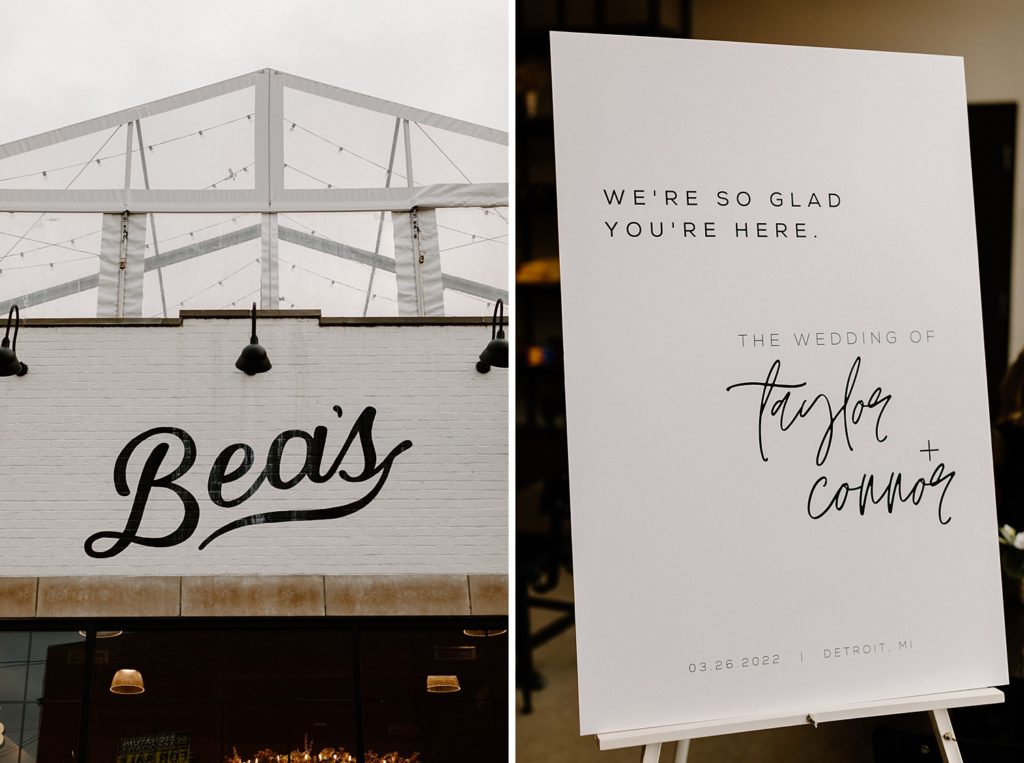 Bea's
FOR SALE
WE'RE SO GLAD
YOU'RE HERE.
THE WEDDING OF
taylor
+
connor
03.26.2022 | DETROIT, MI